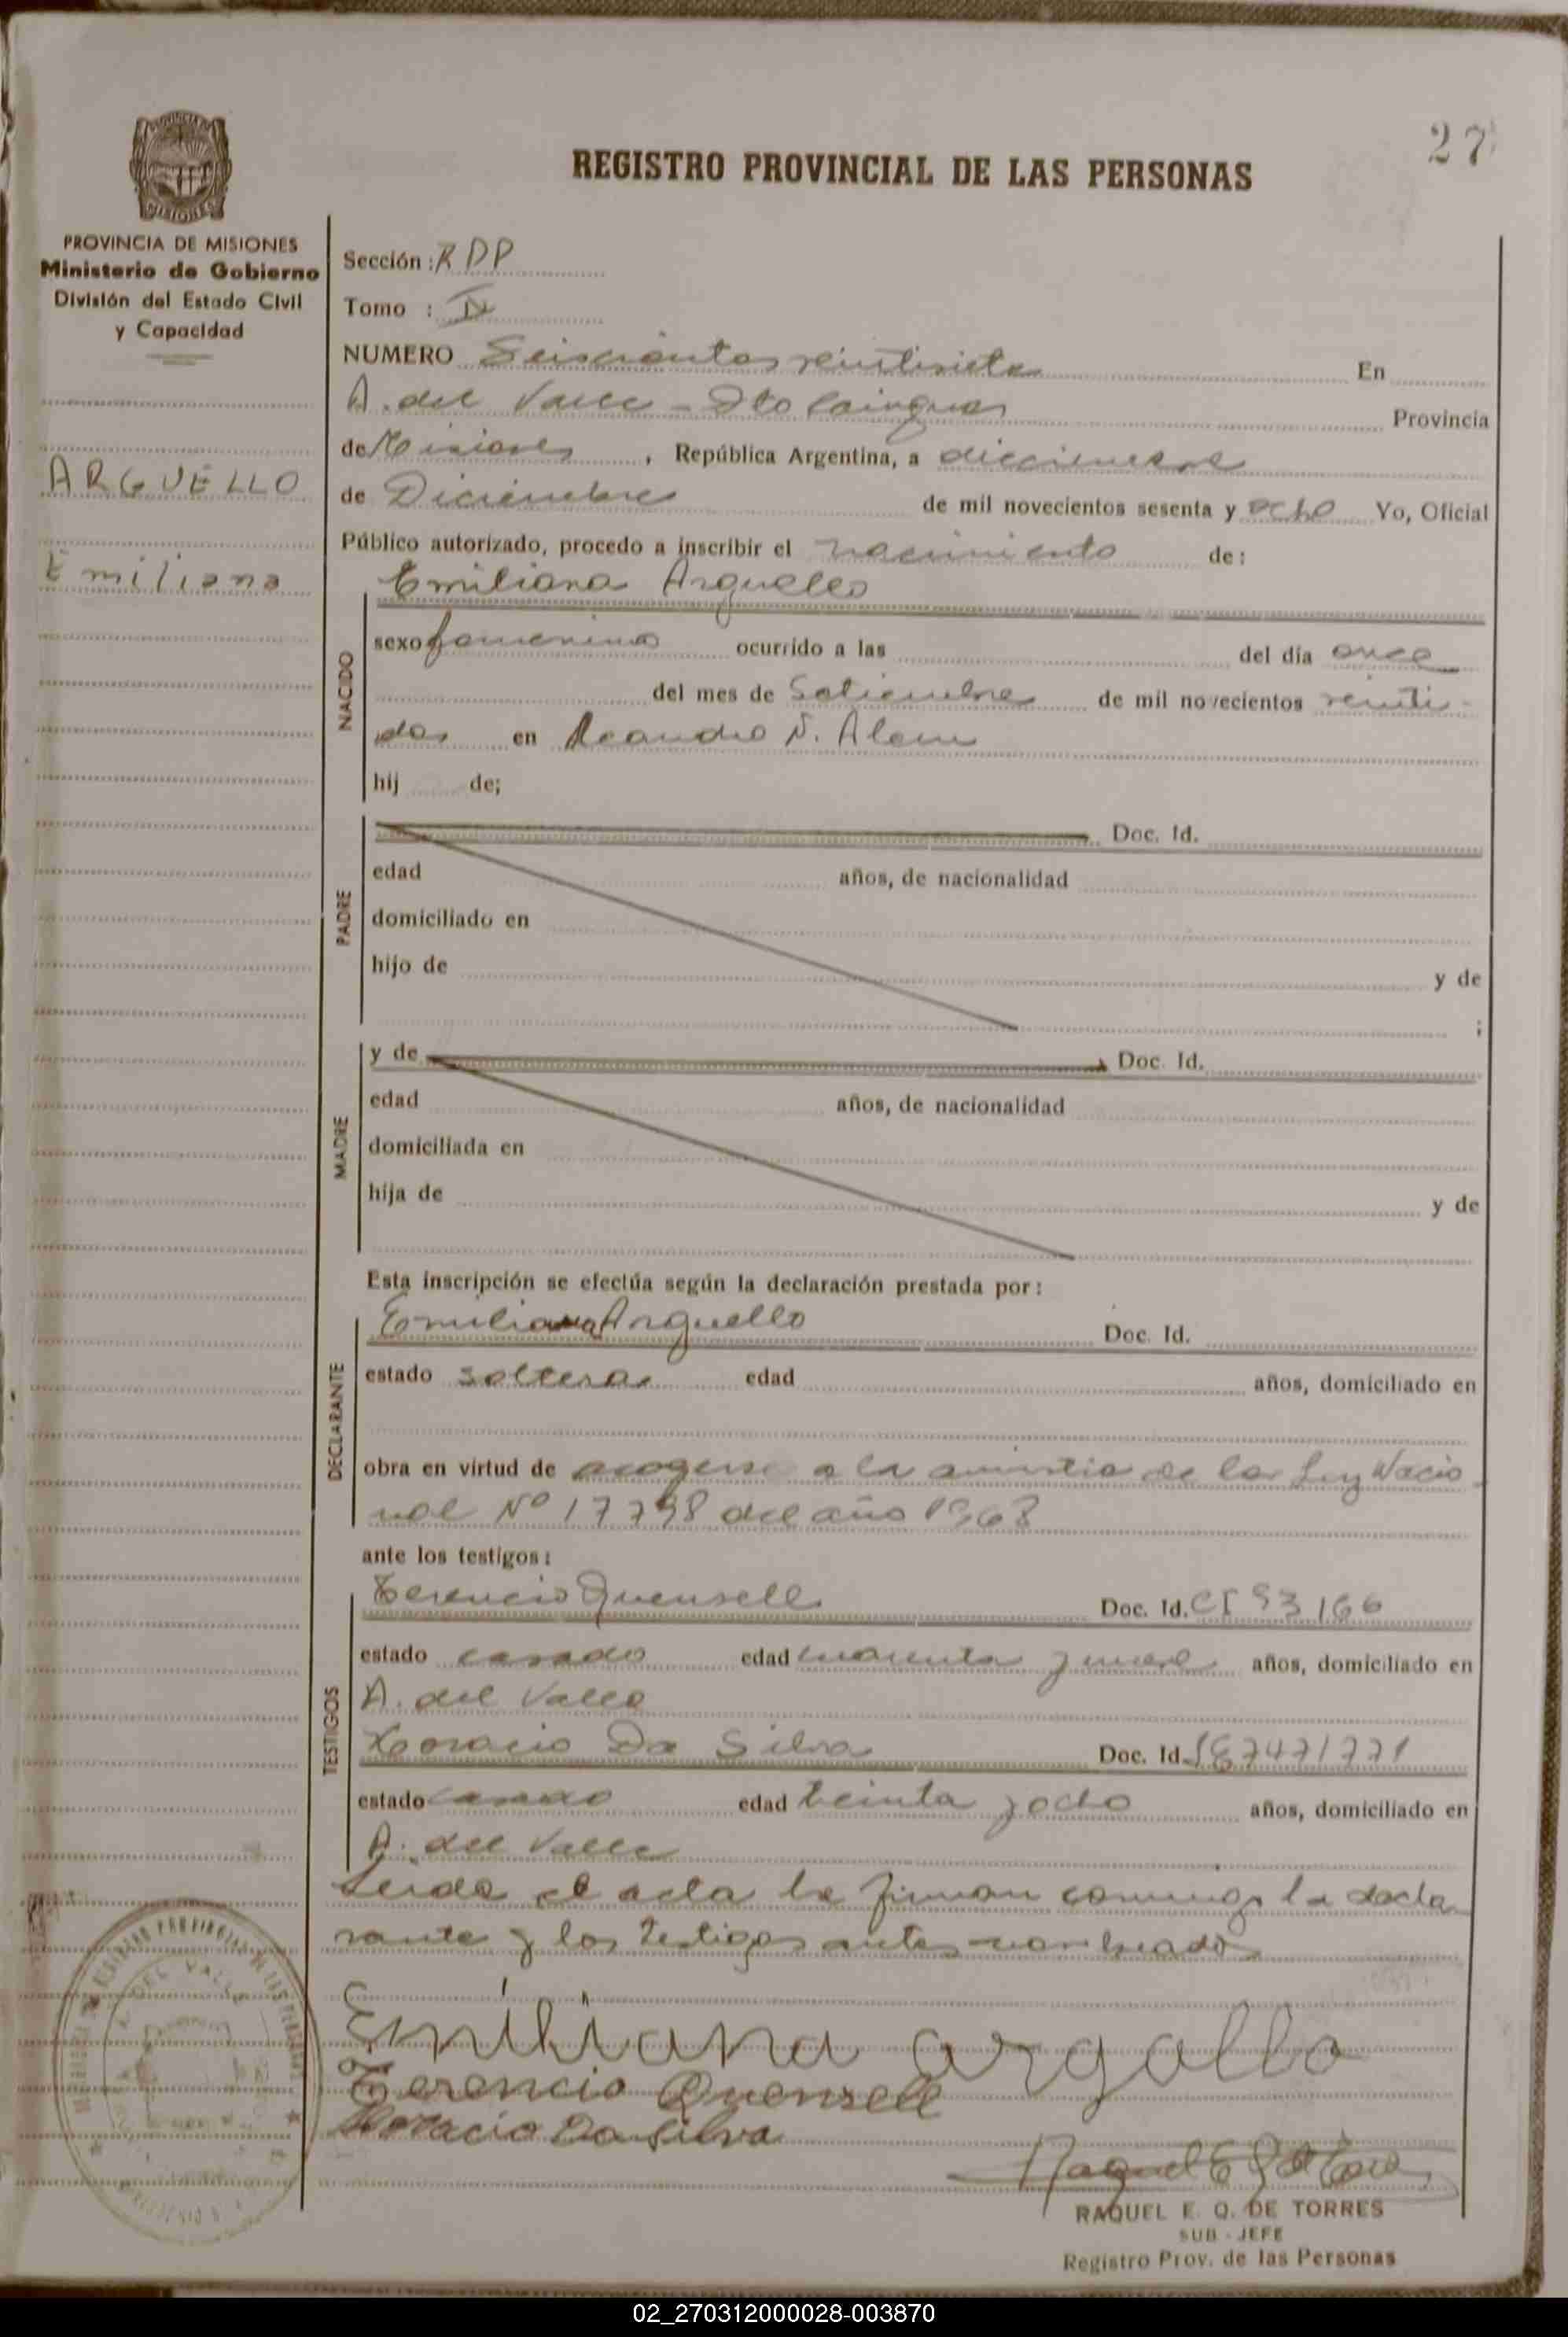 27
REGISTRO PROVINCIAL DE LAS PERSONAS
PROVINCIA DE MISIONES
Ministerio de Gobierno
División del Estado Civil
y Capacidad
ARGUELLO
Emiliana
Sección : RDP
Tomo :
NUMERO Seiscientos veintisiete En
A. del Valle - Dto Cainguas Provincia
de Misiones, República Argentina, a diecinueve
de Diciembre de mil novecientos sesenta y ocho Yo, Oficial
Público autorizado, procedo a inscribir el nacimiento de:
Emiliana Arguello
NACIDO
sexo femenino ocurrido a las del día once
del mes de Setiembre de mil novecientos veinti-
dos en Leandro N. Alem
hij de;
PADRE
Doc. Id.
edad años, de nacionalidad
domiciliado en
hijo de y de
;
MADRE
y de Doc. Id.
edad años, de nacionalidad
domiciliada en
hija de y de
Esta inscripción se efectúa según la declaración prestada por:
DECLARANTE
Emiliana Arguello Doc. Id.
estado soltera edad años, domiciliado en
obra en virtud de acogerse a la amnistia de la Ley Nacio-
nal Nº 17798 del año 1968
ante los testigos:
TESTIGOS
Terencio Quensell Doc. Id. CI 93166
estado casado edad cuarenta y nueve años, domiciliado en
A. del Valle
Horacio Da Silva Doc. Id.
estado casado edad treinta y ocho años, domiciliado en
A. del Valle
Leida el acta la firman conmigo la decla
rante y los testigos antes nombrados
Emiliana argollo
Terencio Quensell
Horacio Da Silva
RAQUEL E. Q. DE TORRES
SUB - JEFE
Registro Prov. de las Personas
02_270312000028-003870